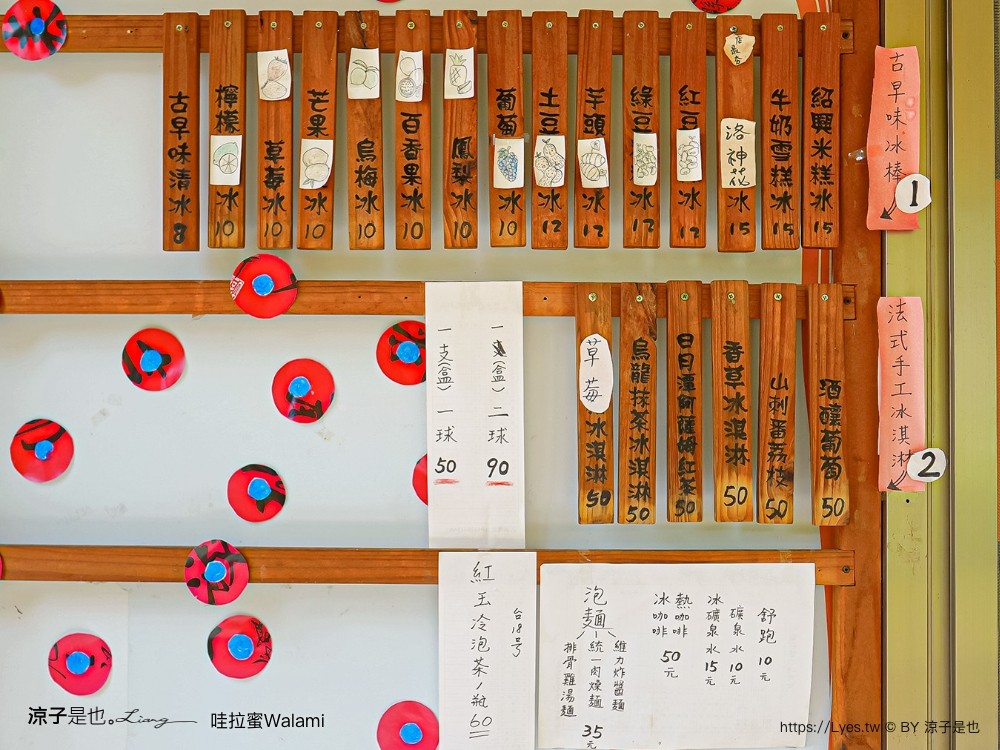 古早味冰棒
1
紹興米糕冰 15
牛奶雪糕冰 15
洛神花冰 15
紅豆冰 12
綠豆冰 12
芋頭冰 12
土豆冰 12
葡萄冰 10
鳳梨冰 10
百香果冰 10
烏梅冰 10
芒果冰 10
草莓冰 10
檸檬冰 10
古早味清冰 8
法式手工冰淇淋
2
酒釀葡萄 50
山刺番荔枝 50
香草冰淇淋 50
日月潭阿薩姆紅茶 50
烏龍抹茶冰淇淋 50
草莓冰淇淋 50
一支(盒)二球 90
一支(盒)一球 50
舒跑 10元
礦泉水 10元
冰礦泉水 15元
熱咖啡
冰咖啡
50元
泡麵
維力炸醬麵
統一肉燥麵
排骨雞湯麵
35元
台18号
紅玉冷泡茶/瓶 60
涼子是也。Liang
哇拉蜜Walami
https://Lyes.tw © BY 涼子是也